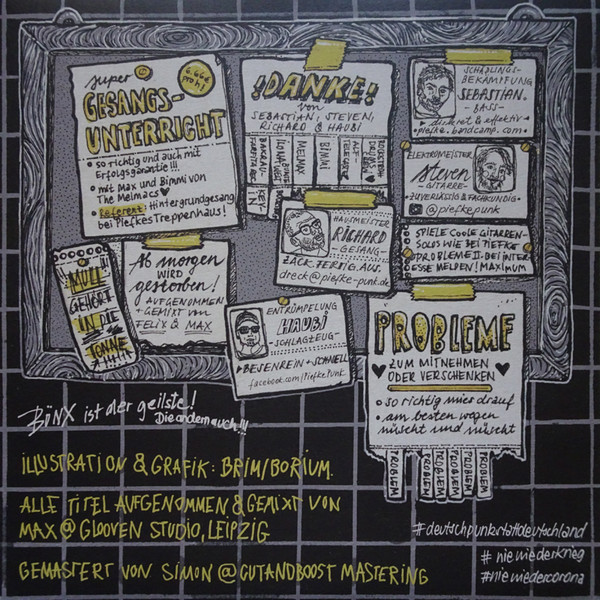 super
GESANGS-
UNTERRICHT
6.66€
pro h!
• so richtig und auch mit
Erfolgsgarantie!!!
• mit Max und Bimmi von
The Melmacs
• Referenz: Hintergrundgesang
bei Piefkes Treppenhaus!
!DANKE!
von
SEBASTIAN, STEVEN,
RICHARD & HAUBI
MELMAX
BIMMI
SCHÄDLINGS-
BEKÄMPFUNG
SEBASTIAN
- BASS -
diskret & effektiv
piefke.bandcamp.com
ELEKTROMEISTER
Steven
- GITARRE -
ZUVERLÄSSIG & FACHKUNDIG
@piefkepunk
HAUSMEISTER
RICHARD
- GESANG -
ZACK. FERTIG. AUS.
dreck@piefke-punk.de
• SPIELE COOLE GITARREN-
SOLOS WIE BEI PIEFKE
PROBLEME II. BEI INTER-
ESSE MELDEN! MAXIMUM
MÜLL
GEHÖRT
IN DIE
TONNE
Ab morgen
WIRD
gestorben!
AUFGENOMMEN
+ GEMIXT VON
FELIX & MAX
ENTRÜMPELUNG
HAUBI
- SCHLAGZEUG -
BESENREIN + SCHNELL
facebook.com/PiefkePunk
PROBLEME
ZUM MITNEHMEN
ODER VERSCHENKEN
• so richtig mies drauf
• am besten wegen
nüscht und nüscht
PROBLEM
PROBLEM
PROBLEM
PROBLEM
PROBLEM
PROBLEM
BÖNX ist der geilste!
Die andern auch!!!
ILLUSTRATION & GRAFIK: BRIM/BORIUM.
ALLE TITEL AUFGENOMMEN & GEMIXT VON
MAX @ GLOOVEN STUDIO, LEIPZIG
GEMASTERT VON SIMON @ CUTANDBOOST MASTERING
#deutschpunkstattdeutschland
#niewiederkrieg
#niewiedercorona